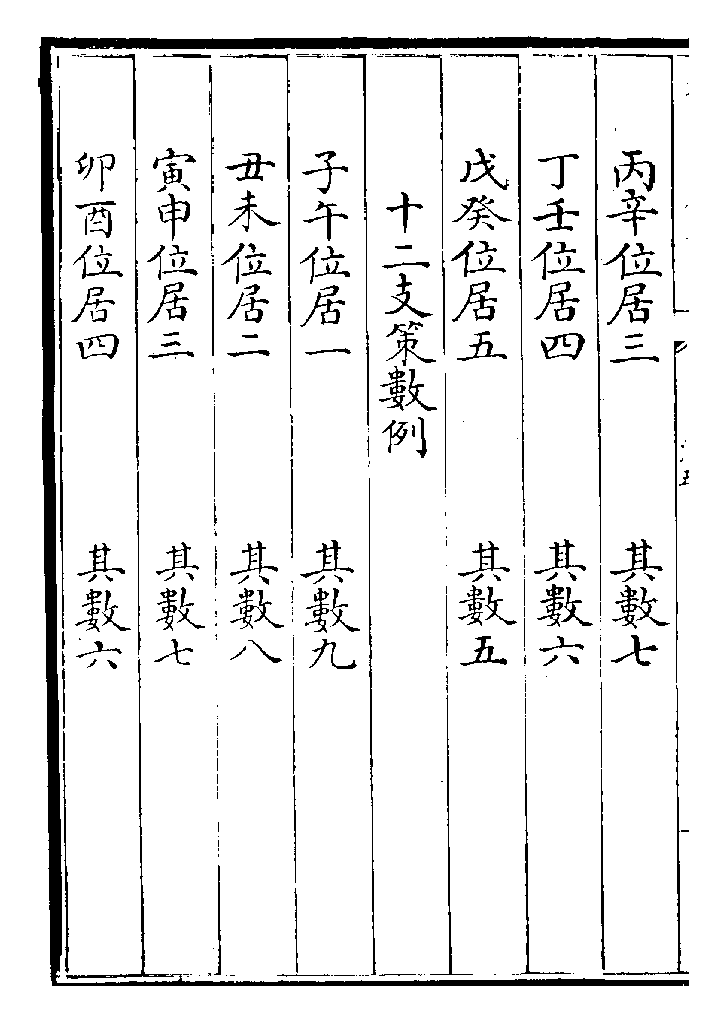 丙辛位居三　其數七
丁壬位居四　其數六
戊癸位居五　其數五
十二支策數例
子午位居一　其數九
丑未位居二　其數八
寅申位居三　其數七
卯酉位居四　其數六